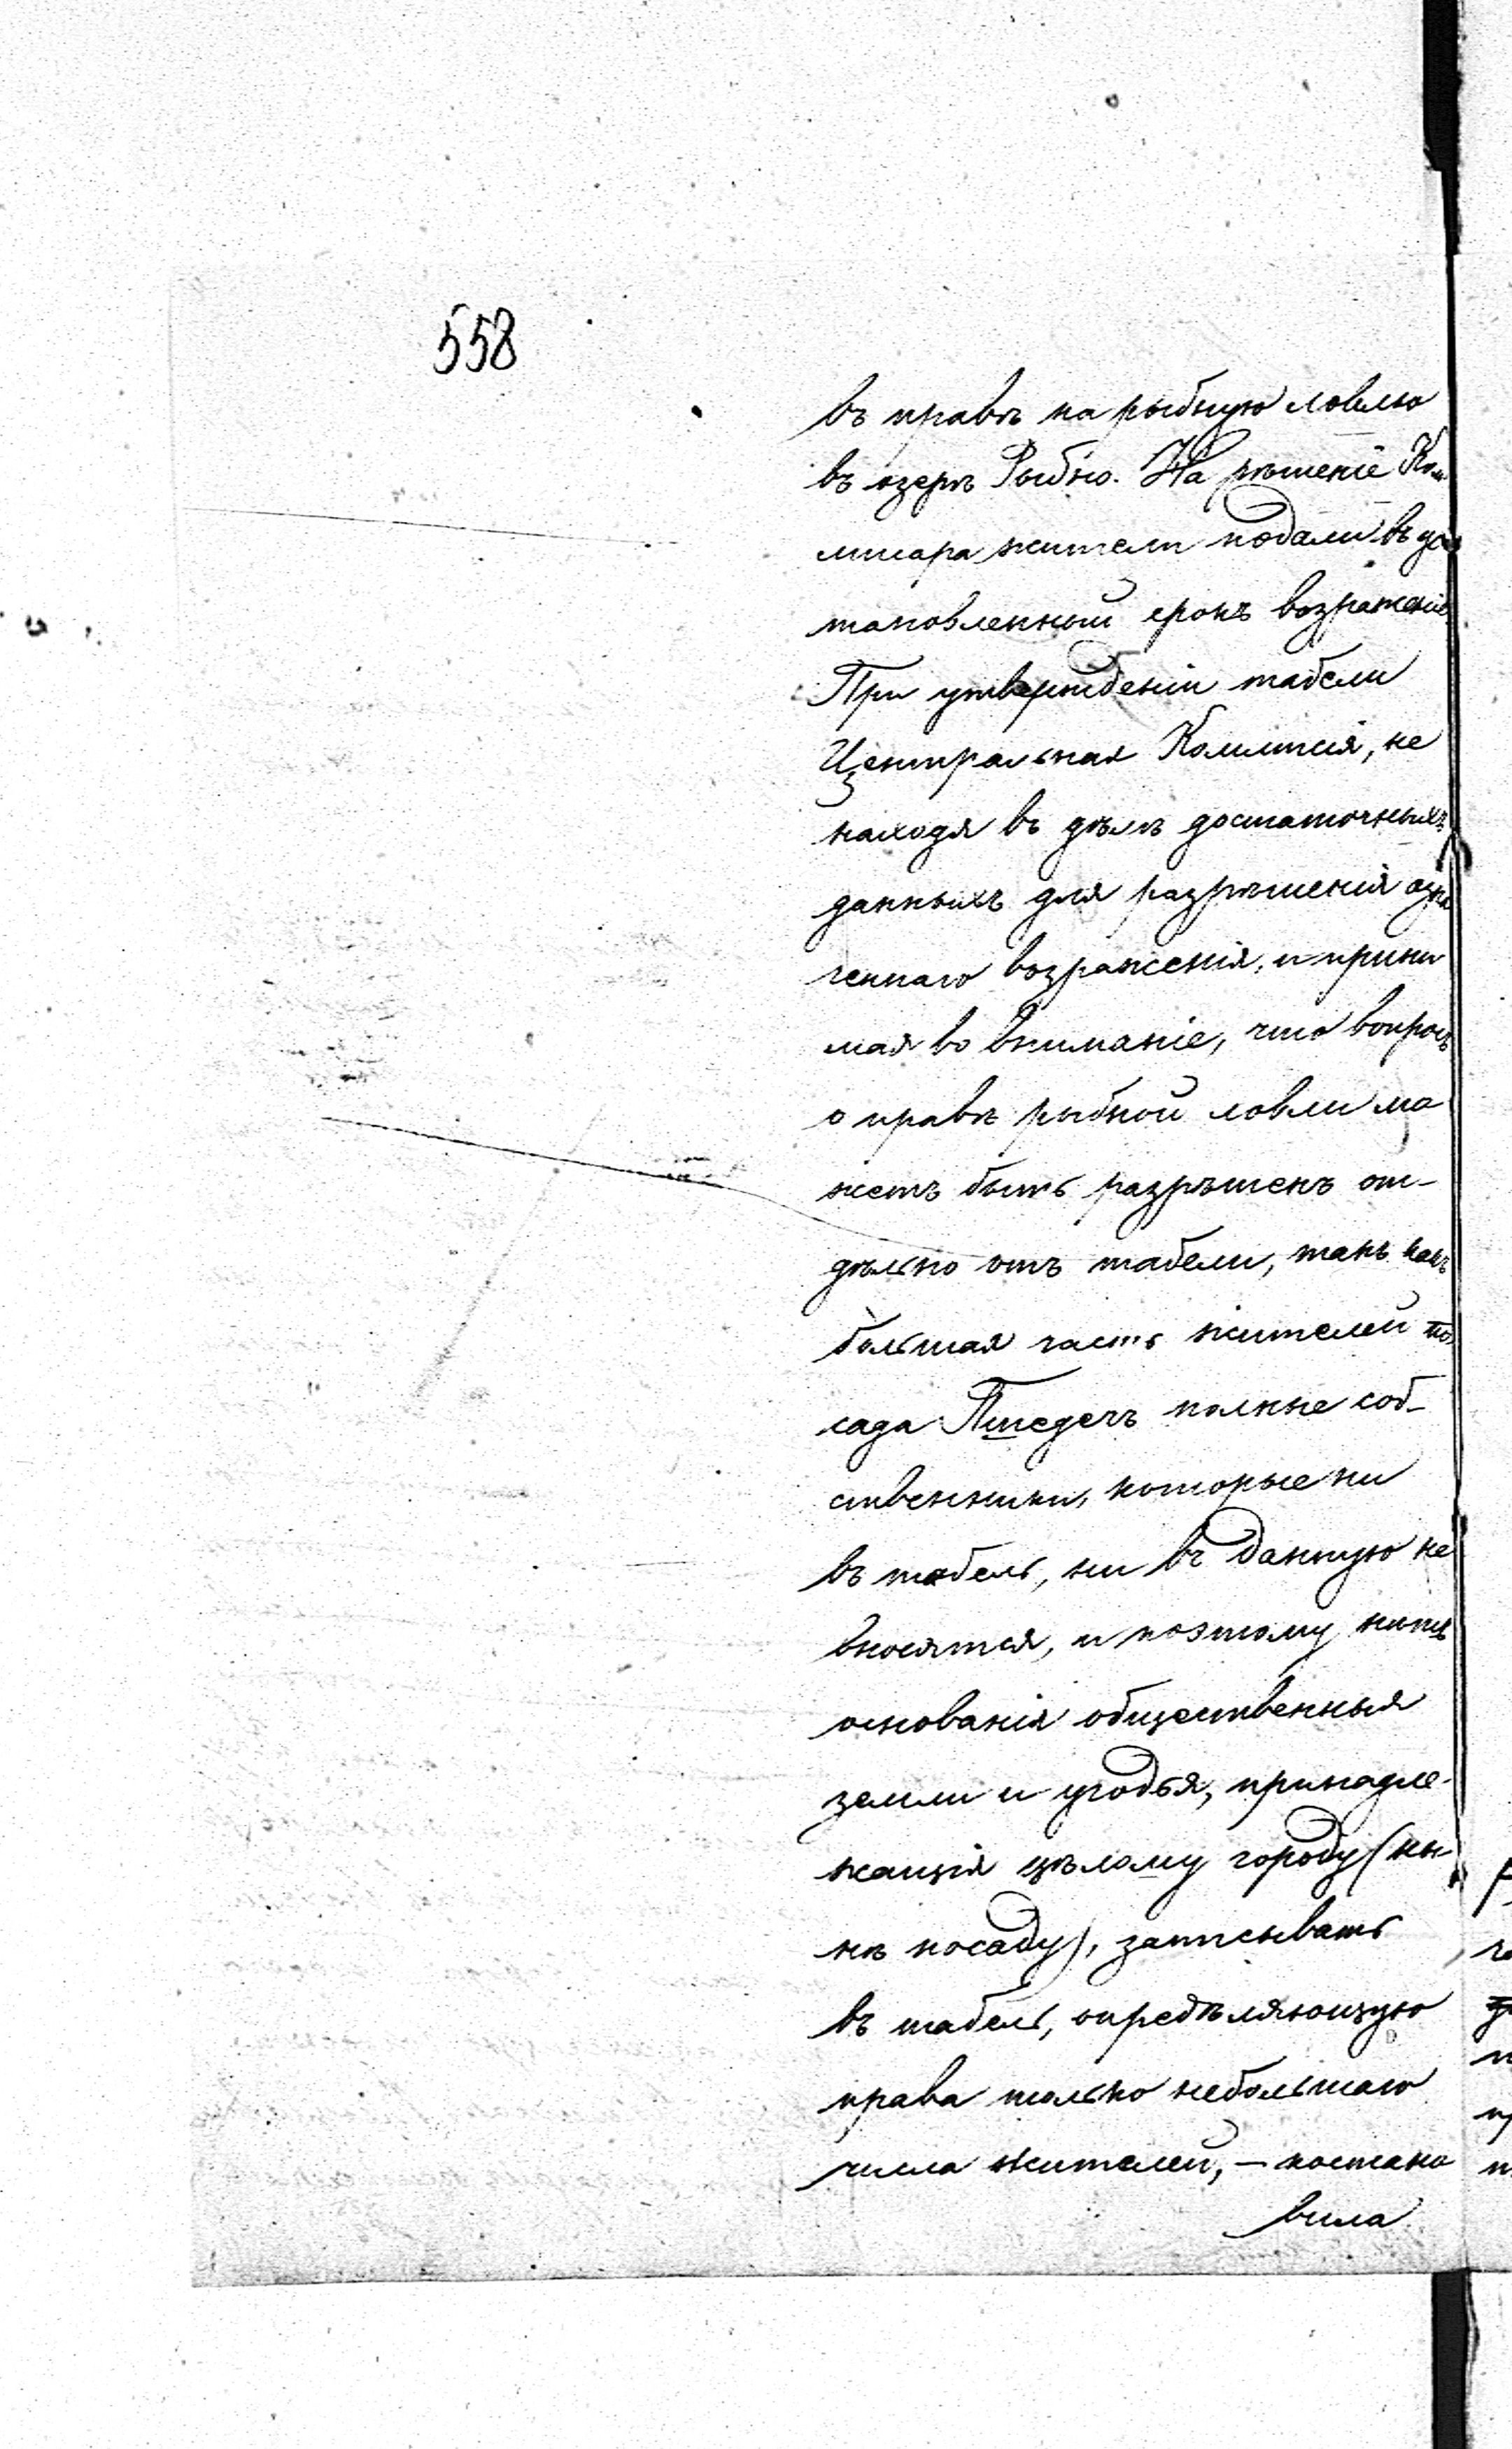 558
въ правѣ на рыбную ловлю
въ озерѣ Рыбно. На рѣшеніе Ком
мисара жители подали въ ус
тановленный срокъ возраженіе.
При утвержденіи табели
Центральная Коммисія, не
находя въ дѣлѣ достаточныхъ
данныхъ для разрѣшенія озна
ченнаго возраженія, и прини
мая во вниманіе, что вопросъ
о правѣ рыбной ловли мо
жетъ быть разрѣшенъ от-
дѣльно отъ табели, такъ какъ
бо́льшая часть жителей по
сада Пшедечъ полные соб-
ственники, которые ни
въ табель, ни въ данную не
вносятся, и поэтому нѣтъ
основанія общественныя
земли и угодья, принадле-
жащія цѣлому городу (ны-
нѣ посаду), записывать
въ табель, опредѣляющую
права только небольшаго
числа жителей, – постано
вила